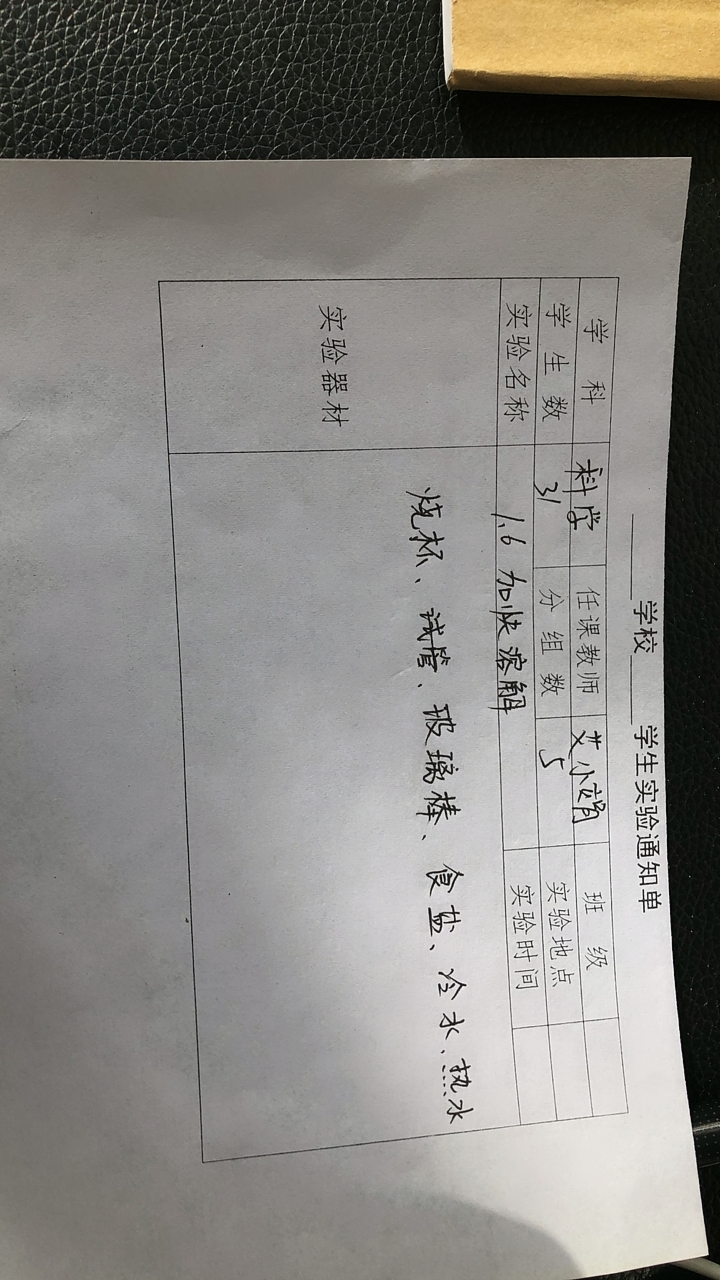 ______学校______学生实验通知单
学 科 科学 任课教师 艾小娟 班 级
学 生 数 31 分 组 数 5 实验地点
实验名称 1.6 加快溶解 实验时间
实验器材 烧杯、试管、玻璃棒、食盐、冷水、热水